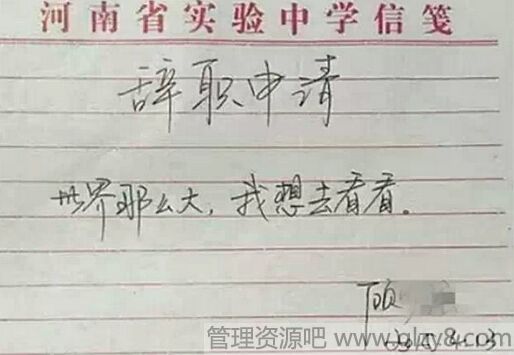 河南省实验中学信笺
辞职申请
世界那么大，我想去看看。
顾
管理资源吧 www.glzy8.com